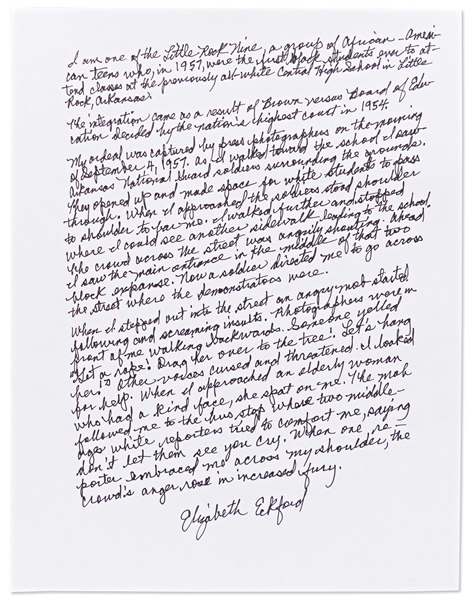 I am one of the Little Rock Nine, a group of African-Ameri-
can teens who, in 1957, were the first black students ever to at-
tend classes at the previously all-white Central High School in Little
Rock, Arkansas.
The integration came as a result of Brown versus Board of Edu-
cation decided by the nation's highest court in 1954.
My ordeal was captured by press photographers on the morning
of September 4, 1957. As I walked toward the school I saw
Arkansas National Guard soldiers surrounding the grounds.
They opened up and made space for white students to pass
through. When I approached the soldiers stood shoulder
to shoulder to bar me. I walked further and stopped
where I could see another sidewalk leading to the school.
The crowd across the street was angrily shouting. Ahead
I saw the main entrance in the middle of that two
block expanse. Now a soldier directed me to go across
the street where the demonstrators were.
When I stepped out into the street an angry mob started
following and screaming insults. Photographers were in
front of me walking backwards. Someone yelled
"Get a rope! Drag her over to the tree! Let's hang
her!" Other voices cursed and threatened. I looked
for help. When I approached an elderly woman
who had a kind face, she spat on me. The mob
followed me to the bus stop where two middle-
age white reporters tried to comfort me, saying
don't let them see you cry. When one re-
porter embraced me across my shoulder, the
crowd's anger rose in increased fury.
Elizabeth Eckford